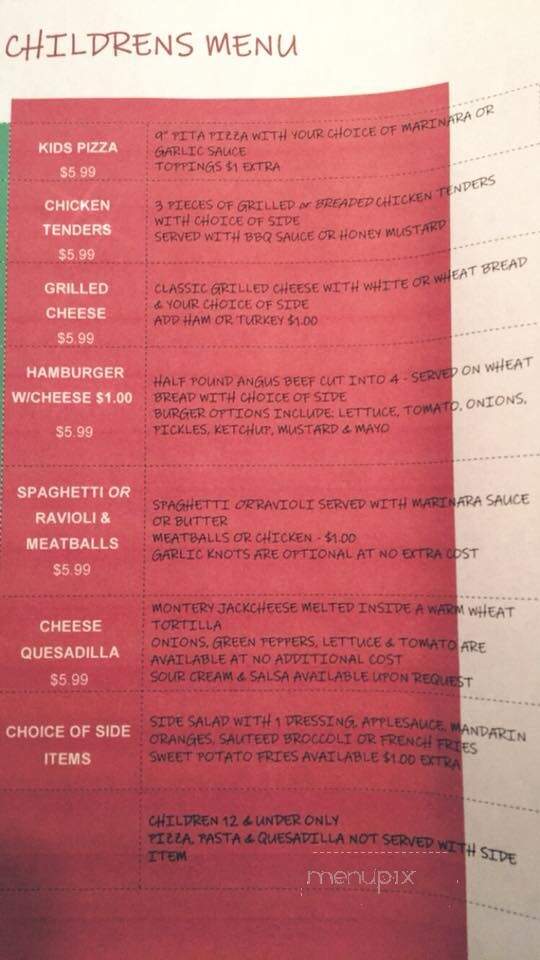 CHILDRENS MENU
KIDS PIZZA
$5.99
9" PITA PIZZA WITH YOUR CHOICE OF MARINARA OR
GARLIC SAUCE
TOPPINGS $1 EXTRA
CHICKEN
TENDERS
$5.99
3 PIECES OF GRILLED or BREADED CHICKEN TENDERS
WITH CHOICE OF SIDE
SERVED WITH BBQ SAUCE OR HONEY MUSTARD
GRILLED
CHEESE
$5.99
CLASSIC GRILLED CHEESE WITH WHITE OR WHEAT BREAD
& YOUR CHOICE OF SIDE
ADD HAM OR TURKEY $1.00
HAMBURGER
W/CHEESE $1.00
$5.99
HALF POUND ANGUS BEEF CUT INTO 4 - SERVED ON WHEAT
BREAD WITH CHOICE OF SIDE
BURGER OPTIONS INCLUDE: LETTUCE, TOMATO, ONIONS,
PICKLES, KETCHUP, MUSTARD & MAYO
SPAGHETTI OR
RAVIOLI &
MEATBALLS
$5.99
SPAGHETTI OR RAVIOLI SERVED WITH MARINARA SAUCE
OR BUTTER
MEATBALLS OR CHICKEN - $1.00
GARLIC KNOTS ARE OPTIONAL AT NO EXTRA COST
CHEESE
QUESADILLA
$5.99
MONTERY JACKCHEESE MELTED INSIDE A WARM WHEAT
TORTILLA
ONIONS, GREEN PEPPERS, LETTUCE & TOMATO ARE
AVAILABLE AT NO ADDITIONAL COST
SOUR CREAM & SALSA AVAILABLE UPON REQUEST
CHOICE OF SIDE
ITEMS
SIDE SALAD WITH 1 DRESSING, APPLESAUCE, MANDARIN
ORANGES, SAUTEED BROCCOLI OR FRENCH FRIES
SWEET POTATO FRIES AVAILABLE $1.00 EXTRA
CHILDREN 12 & UNDER ONLY
PIZZA, PASTA & QUESADILLA NOT SERVED WITH SIDE
ITEM
menupix